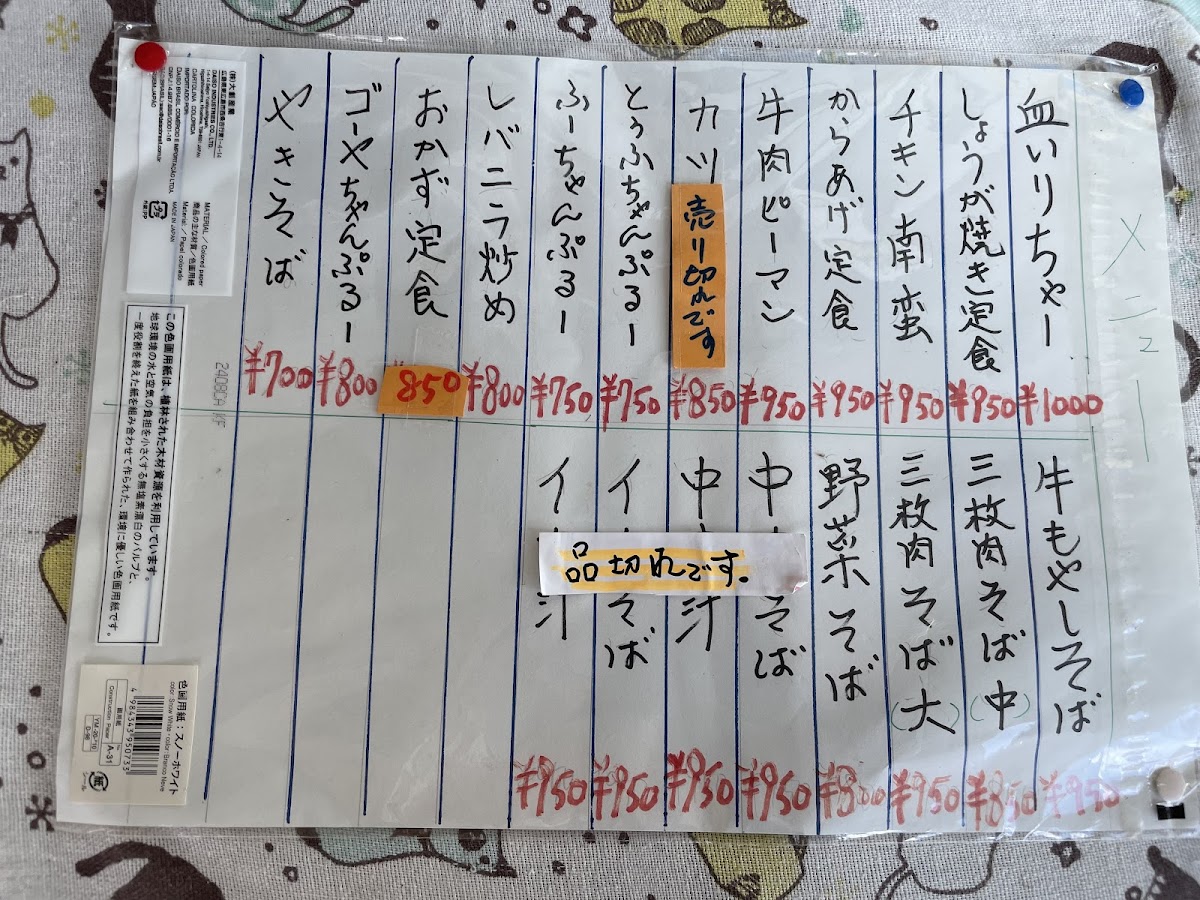 メニュー
血いりちゃー ¥1000
しょうが焼き定食 ¥950
チキン南蛮 ¥950
からあげ定食 ¥950
牛肉ピーマン ¥950
カツ 売り切れです ¥850
とうふちゃんぷるー ¥750
ふーちゃんぷるー ¥750
レバニラ炒め ¥800
おかず定食 850
ゴーヤちゃんぷるー ¥800
やきそば ¥700
牛もやしそば ¥950
三枚肉そば(中) ¥850
三枚肉そば(大) ¥950
野菜そば ¥800
中 そば ¥950
中 汁 ¥950
イ そば ¥950
イ 汁 ¥950
品切れです。
(株)大創産業
DAISO INDUSTRIES CO., LTD.
MADE IN JAPAN
MATERIAL / Colored paper
商品の主な材質/色画用紙
Material / Papel colorado
この色画用紙は、植林された木材資源を利用しています。
地球環境の水と空気の負担を小さくする無塩素漂白のパルプと、
一度役割を終えた紙を組み合わせて作られた、環境に優しい色画用紙です。
色画用紙:スノーホワイト
Construction Paper
A-31
4 984343 950733